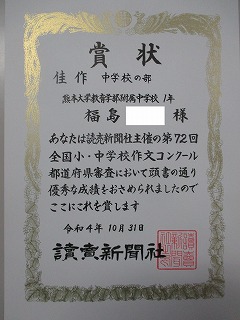 賞状
佳作 中学校の部
熊本大学教育学部附属中学校 1年
福島 様
あなたは読売新聞社主催の第72回
全国小・中学校作文コンクール
都道府県審査において頭書の通り
優秀な成績をおさめられましたので
ここにこれを賞します
令和4年10月31日
讀賣新聞社